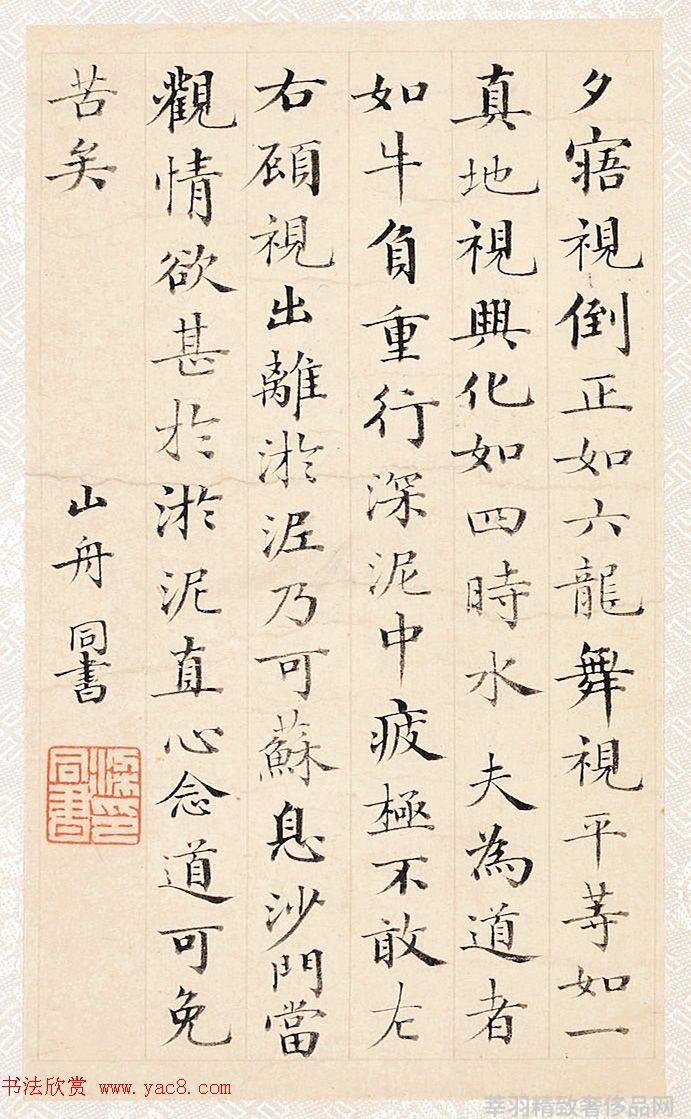 夕寤視倒正如六龍舞視平等如一
真地視興化如四時水 夫為道者
如牛負重行深泥中疲極不敢左
右顧視出離淤泥乃可蘇息沙門當
觀情欲甚於淤泥直心念道可免
苦矣 山舟同書
梁印
同書
书法欣赏 www.yac8.com
莘羽精致奢侈品网